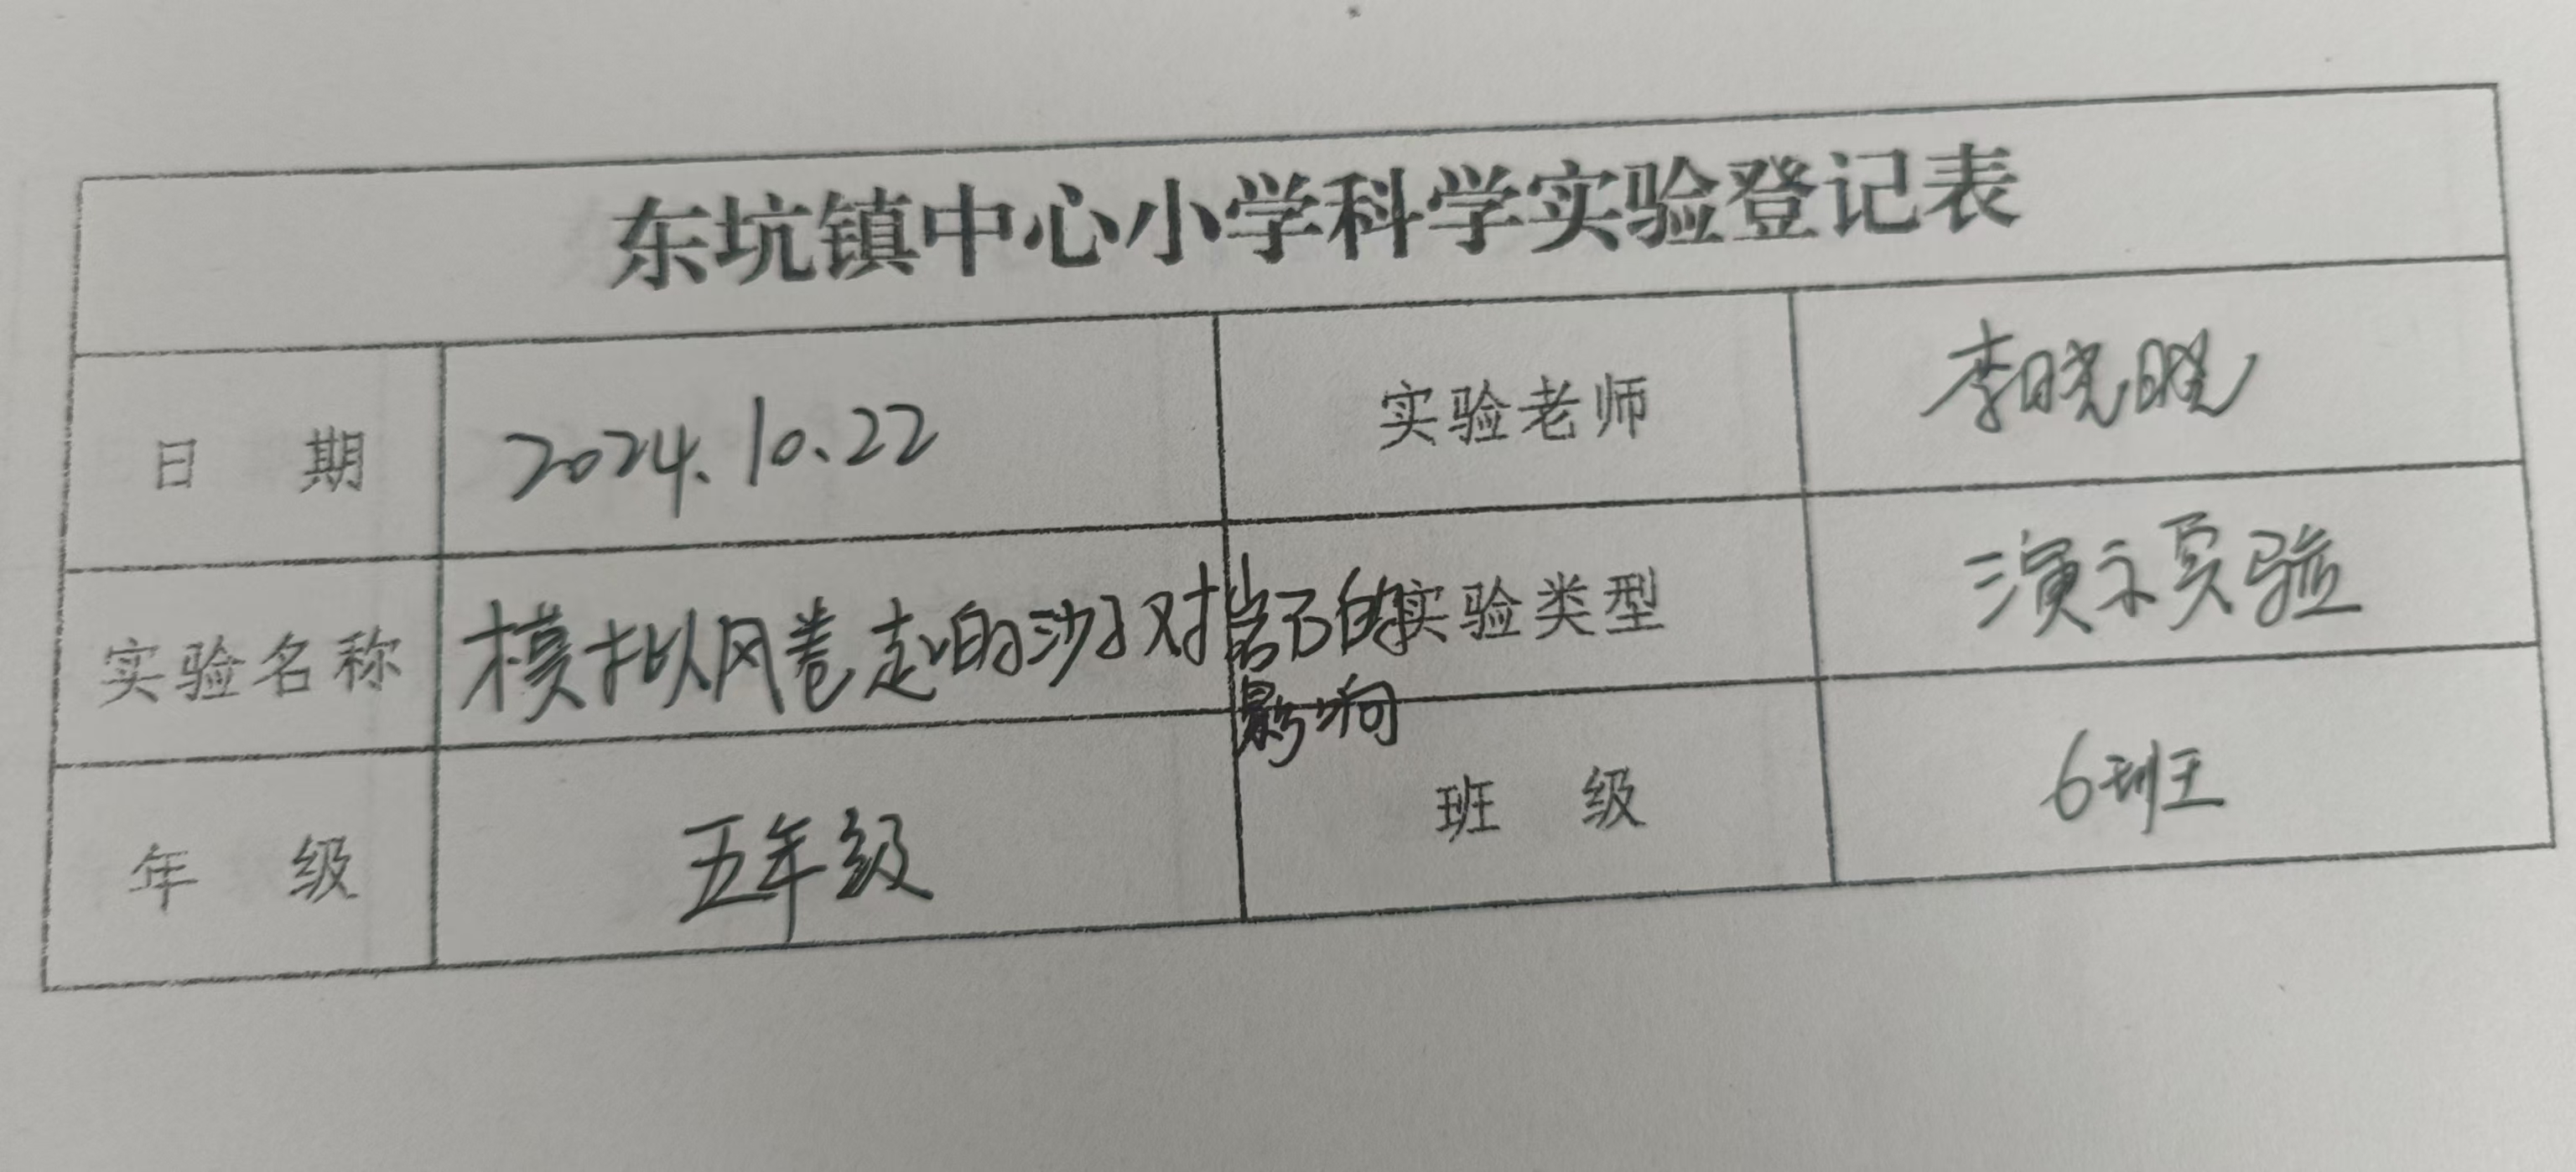 东坑镇中心小学科学实验登记表
日 期 2024.10.22 实验老师 李晓晓
实验名称 模拟风卷起的沙子对岩石的影响 实验类型 演示实验
年 级 五年级 班 级 6班